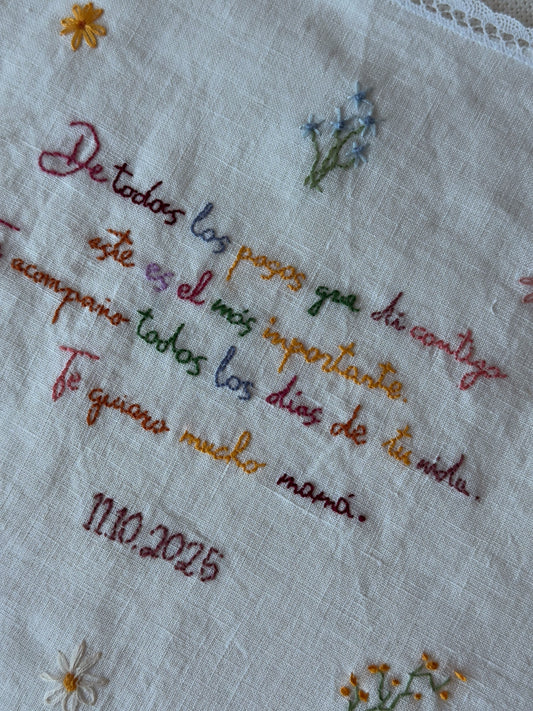 De todos los pasos que di contigo
este es el más importante.
Te acompaño todos los días de tu vida.
Te quiero mucho mamá.
11.10.2025